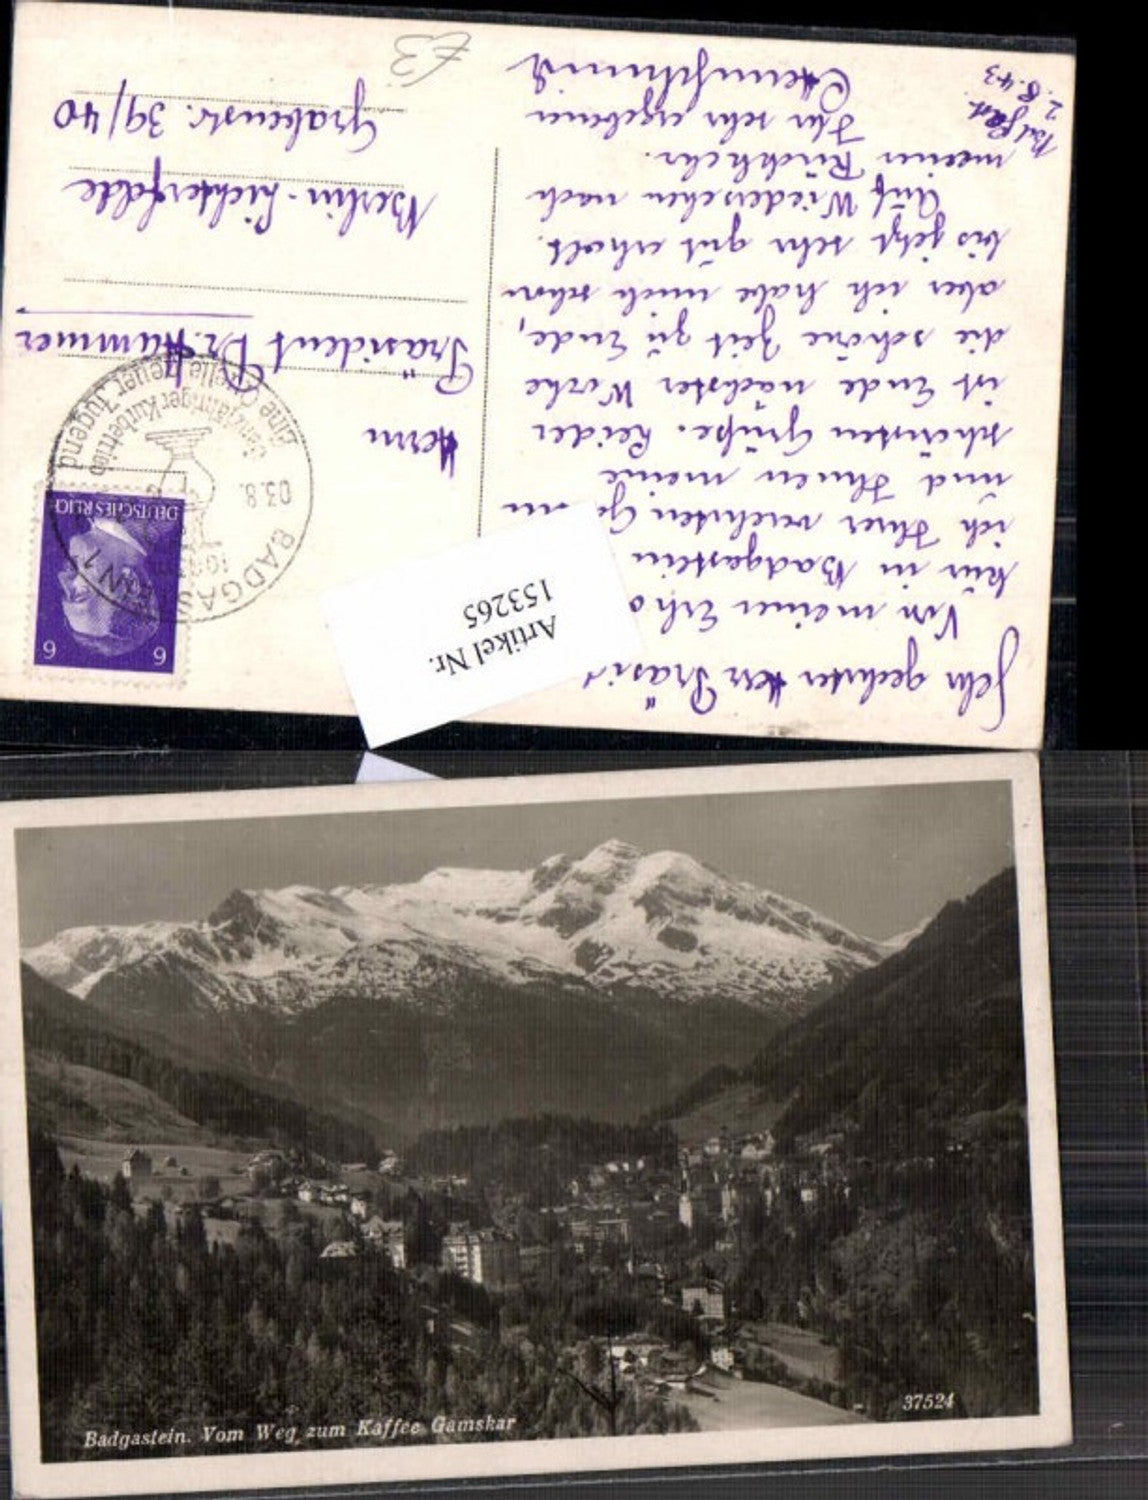 Bad Gastein
2.8.43
Sehr geehrter Herr Präsid
Von meiner Erho
kur in Badgastein
ich Ihrer verehrten Ge
und Ihnen meine
schönsten Grüße. Leider
ist Ende nächster Woche
die schöne Zeit zu Ende,
aber ich habe mich schon
bis jetzt sehr gut erholt.
Auf Wiedersehen nach
meiner Rückkehr.
Ihr sehr ergebener
£3
Artikel Nr.
153265
6 6
DEUTSCHES REICH
BADGASTEIN 1
03.8.
Eine Quelle neuer Jugend
Ganzjähriger Kurbetrieb
Herrn
Präsident Dr. Hammer
Berlin-Lichterfelde
Grabenstr. 39/40
Badgastein. Vom Weg zum Kaffee Gamskar
37524